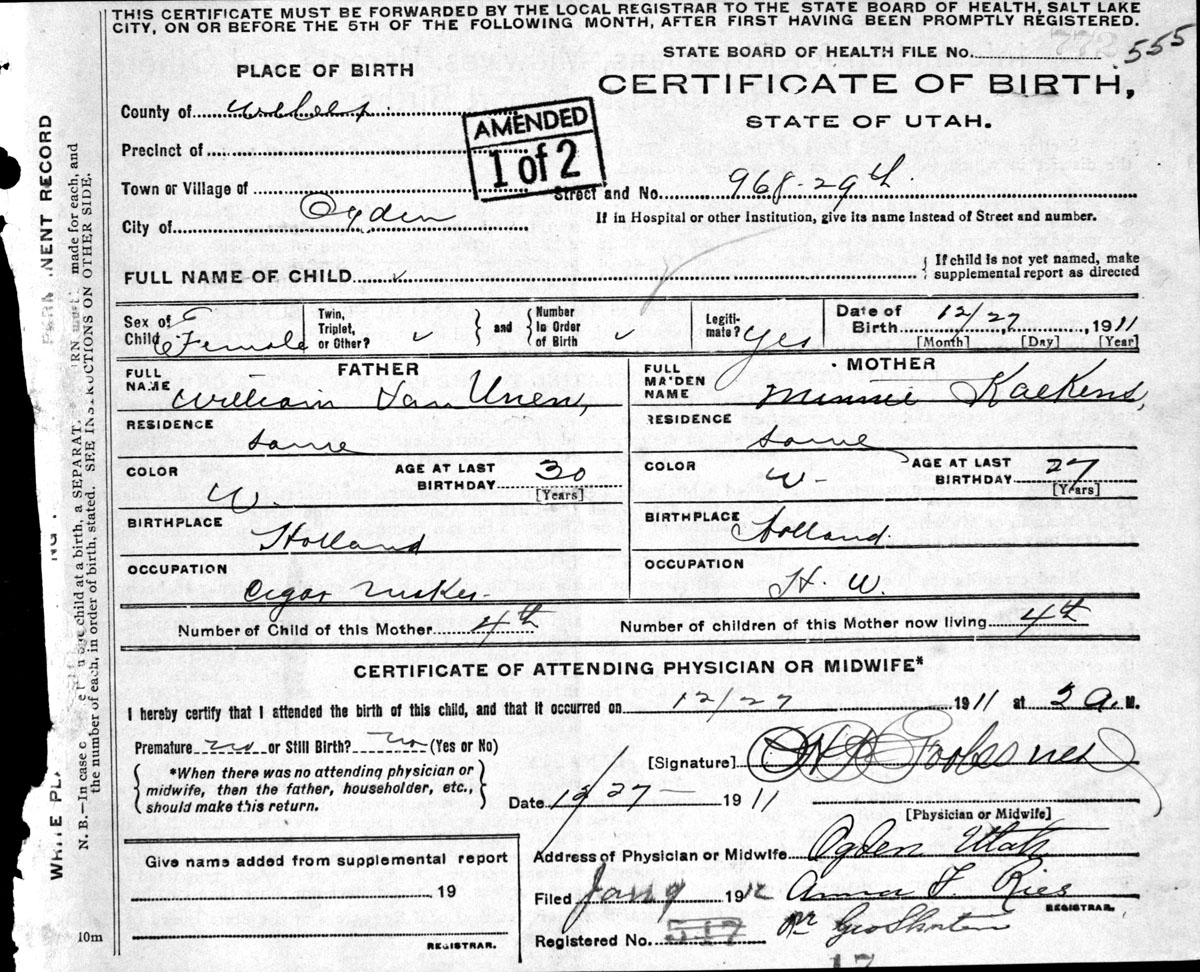 THIS CERTIFICATE MUST BE FORWARDED BY THE LOCAL REGISTRAR TO THE STATE BOARD OF HEALTH, SALT LAKE
CITY, ON OR BEFORE THE 5TH OF THE FOLLOWING MONTH, AFTER FIRST HAVING BEEN PROMPTLY REGISTERED.
STATE BOARD OF HEALTH FILE No. 555
PLACE OF BIRTH
CERTIFICATE OF BIRTH,
STATE OF UTAH.
County of
AMENDED
1 of 2
Precinct of
Town or Village of
Street and No. 968-29th
City of Ogden
If in Hospital or other Institution, give its name instead of Street and number.
FULL NAME OF CHILD
If child is not yet named, make
supplemental report as directed
Sex of Child Female
Twin, Triplet, or Other?
and
Number In Order of Birth
Legitimate? Yes
Date of Birth 12/27, 1911
[Month] [Day] [Year]
FATHER
MOTHER
FULL NAME William Van Unen,
FULL MAIDEN NAME Minnie Kaekens,
RESIDENCE same
RESIDENCE same
COLOR W.
AGE AT LAST BIRTHDAY 30
[Years]
COLOR W-
AGE AT LAST BIRTHDAY 27
[Years]
BIRTHPLACE Holland
BIRTHPLACE Holland
OCCUPATION Cigar Maker
OCCUPATION H. W.
Number of Child of this Mother 4th
Number of children of this Mother now living 4th
CERTIFICATE OF ATTENDING PHYSICIAN OR MIDWIFE*
I hereby certify that I attended the birth of this child, and that it occurred on 12/27 1911 at A. M.
Premature no or Still Birth? no (Yes or No)
[Signature]
*When there was no attending physician or
midwife, then the father, householder, etc.,
should make this return.
Date 12/27 1911
[Physician or Midwife]
Address of Physician or Midwife Ogden Utah
Give name added from supplemental report
19
REGISTRAR.
Filed Jan 9 1912 Anna F. Ries
REGISTRAR.
Registered No. 517
10m
N. B.—In case
child at a birth, a SEPARAT
made for each, and
the number of each, in order of birth, stated. SEE INSTRUCTIONS ON OTHER SIDE.
WRITE
RECORD